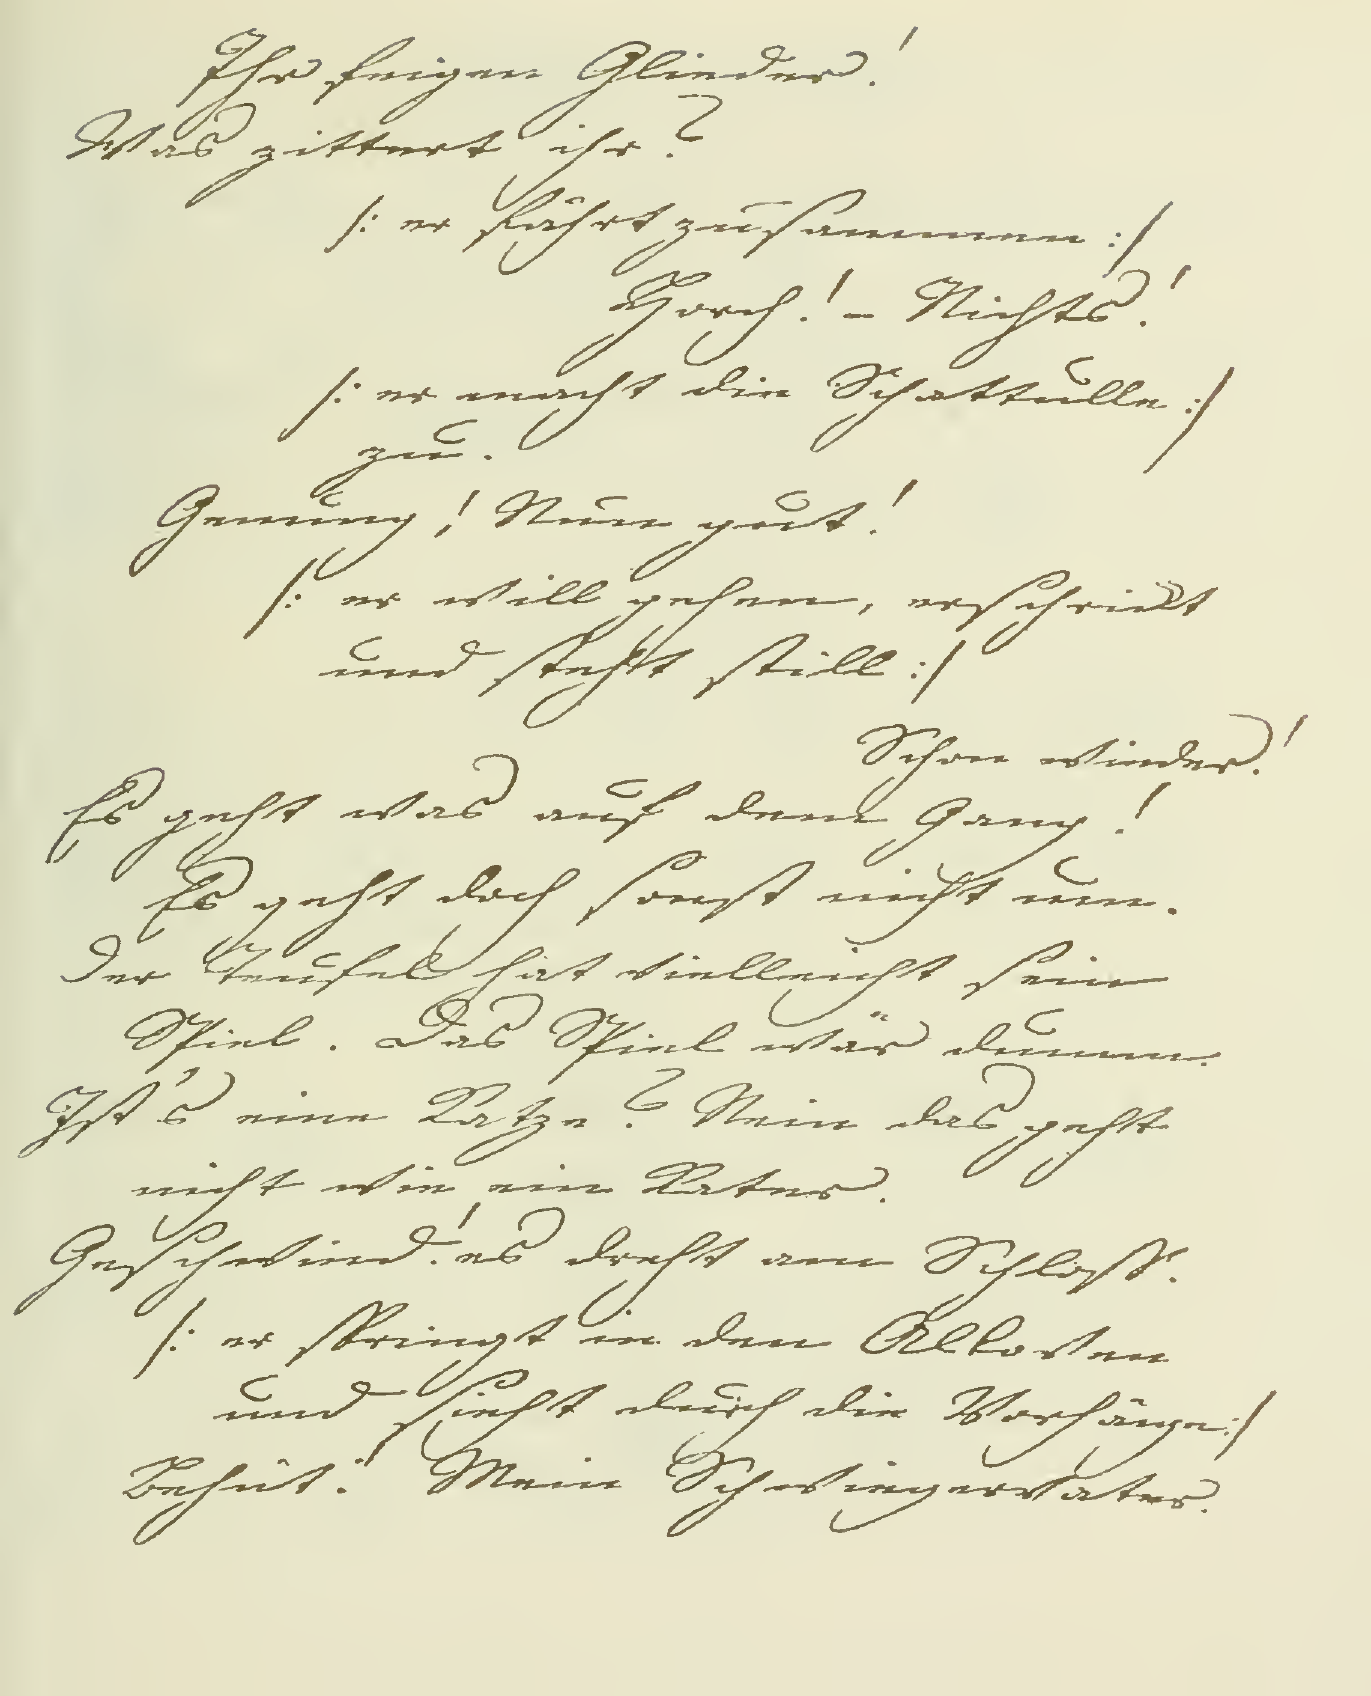 Ihr feigen Glieder!
Was zittert ihr?
/: er fährt zusammen :/
Horch! – Nichts!
/: er macht die Schattulle :/
zu.
Genung! Nun gut!
/: er will gehen, erschrickt
und steht still :/
Schon wieder!
Es geht was auf dem Gang!
Es geht doch sonst nicht um.
Der Teufel hat vielleicht sein
Spiel. Das Spiel wär dumm.
Ist's eine Katze? Nein das geht
nicht wie ein Kater.
Geschwind! es dreht am Schloß.
/: er springt in den Alkoven
und sieht durch die Vorhänge :/
Behüt! Mein Schwiegervater.